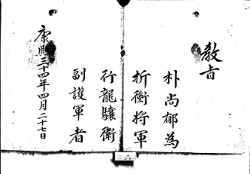 教旨
朴尚郁為
折衝將軍
行龍驤衛
副護軍者
康熙三十四年四月二十七日